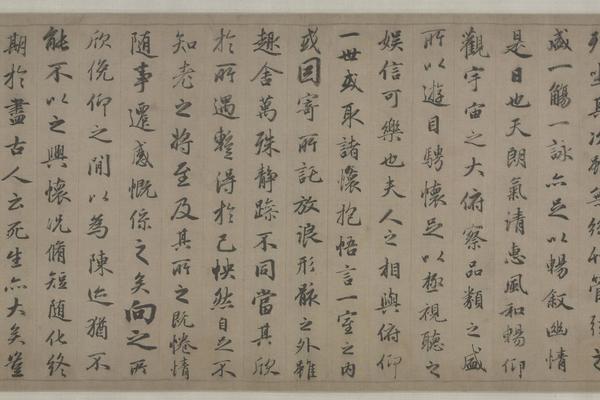 列坐其次雖無絲竹管弦之
盛一觴一詠亦足以暢敘幽情
是日也天朗氣清惠風和暢仰
觀宇宙之大俯察品類之盛
所以遊目騁懷足以極視聽之
娛信可樂也夫人之相與俯仰
一世或取諸懷抱悟言一室之內
或因寄所託放浪形骸之外雖
趣舍萬殊靜躁不同當其欣
於所遇蹔得於己怏然自足不
知老之將至及其所之既惓情
隨事遷感慨係之矣向之所
欣俛仰之閒以為陳迹猶不
能不以之興懷況脩短隨化終
期於盡古人云死生亦大矣豈